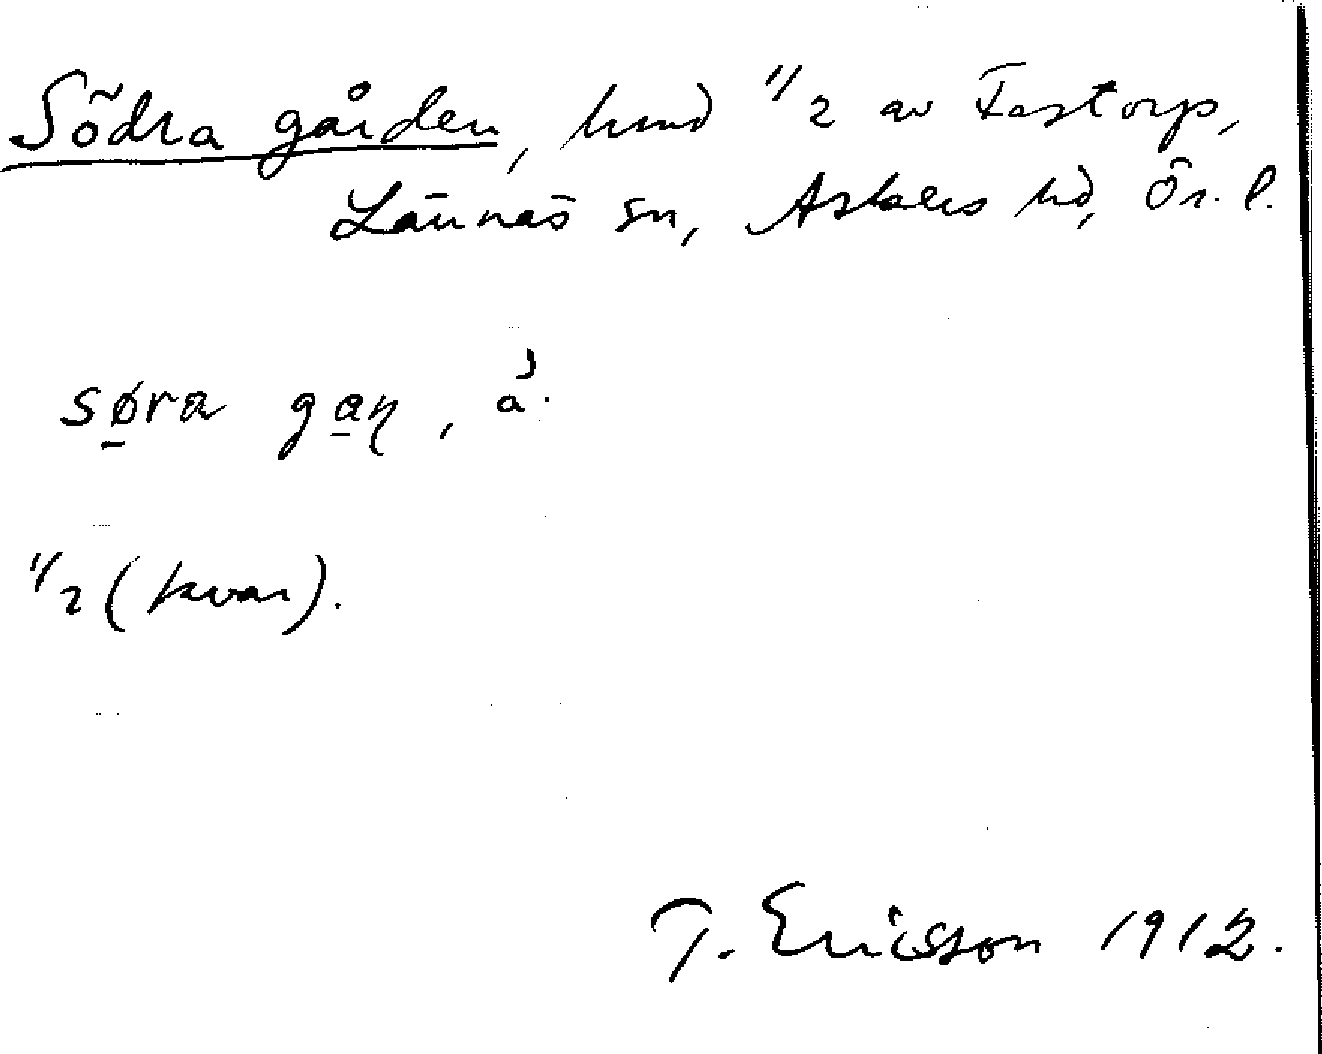 Södra gården, hmd 1/2 av Fastorp,
Lännäs sn, Askers hd, Ör. l.
søra gaṇ, å.
1/2 (kvar).
T. Ericson 1912.